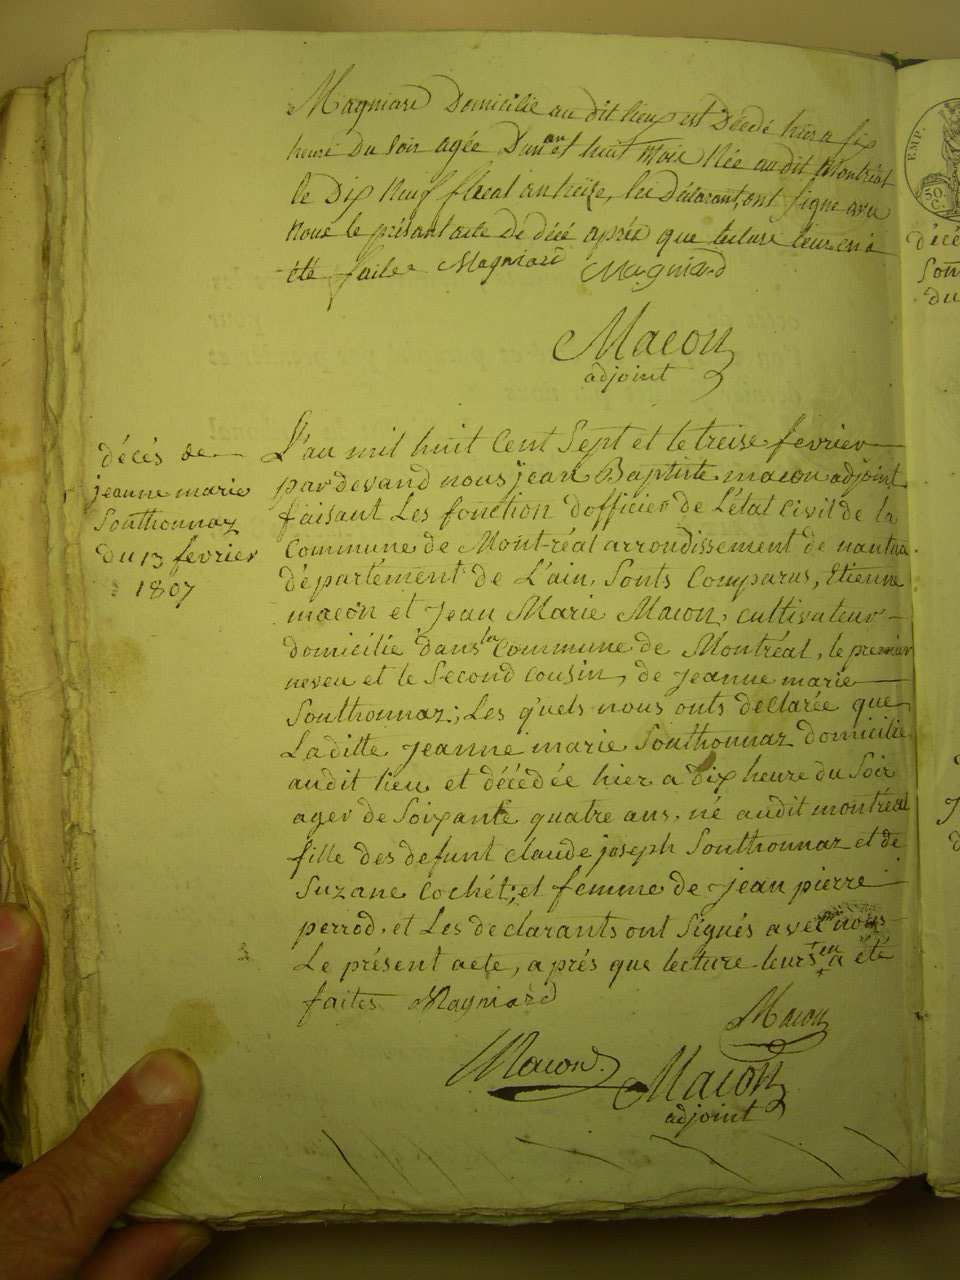 Magniard Domicilié au dit lieu est Décédé hier a six
heure Du Soir agée D'un an et huit mois Née au dit Montréal
le Dix Neuf floréal an treize, les Déclarant, ont signe avec
Nous le présent acte De décé après que lecture leur en a
été faite Magniard Magniard
Macon
adjoint
décés de
jeanne marie
Southonnaz
du 13 fevrier
1807
L'an mil huit Cent Sept et le treise fevrier
par devand nous jean Baptiste macon adjoint
faisant Les fonction d'officier de L'état Civil de la
Commune de Mont-réal arrondissement de nantua
département de L'ain, Sonts Comparus, Etienne
macon et Jean Marie Macon, cultivateur
domicilié dans la Commune de Montréal, le premier
neveu et le Second cousin, de jeanne marie
Southonnaz; Les quels nous onts declarée que
La ditte jeanne marie Southonnaz domicilié
audit lieu et décédée hier a dix heure du Soir
ager de Soixante quatre ans, né audit montréal
fille des defunt claude joseph Southonnaz et de
Suzane Cochét; et femme de jean pierre
perrod, et Les declarants ont Signés avec nous
Le présent acte, aprés que lecture leurs en a été
faites Magniard
Macon
Macon Macon
adjoint
EMP.
50
C.
décé
Sout
du